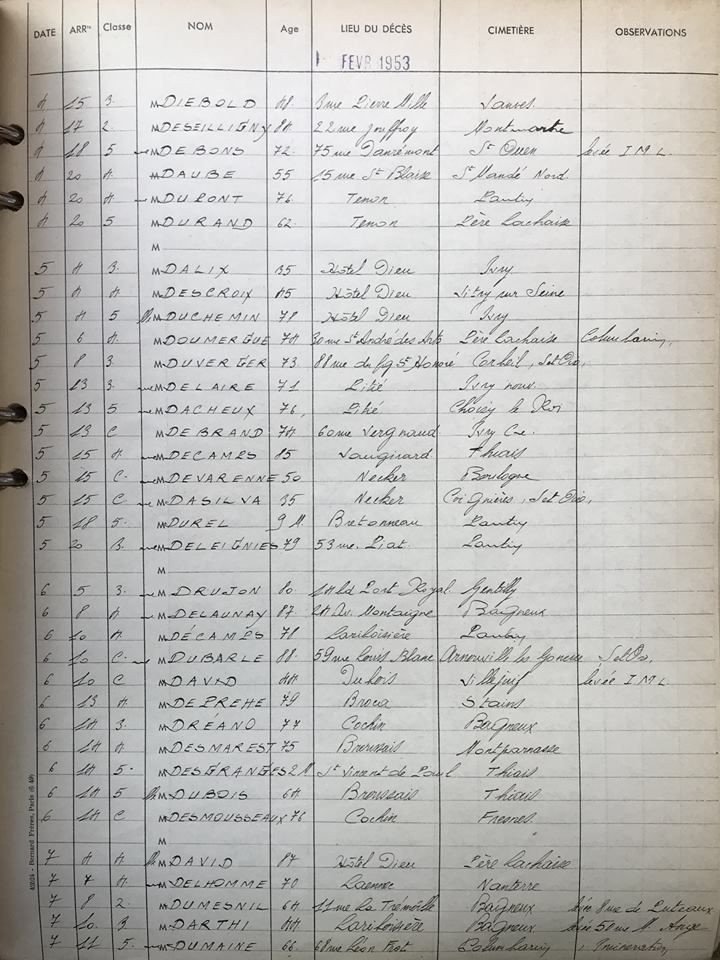 DATE ARRᵗˢ Classe NOM Age LIEU DU DÉCÈS CIMETIÈRE OBSERVATIONS
FEVR 1953
4 15 3. M DIEBOLD 48 3 rue Pierre Mille Vanves
4 17 2. M DESEILLIGNY 84 22 rue Jouffroy Montmartre
4 18 5 M DEBONS 72. 75 rue Damrémont St Ouen levée I M L
4 20 4 M DAUBE 55 15 rue St Blaise St Mandé Nord
4 20 4 M DUPONT 76 Tenon Pantin
4 20 5 M DURAND 62. Tenon Père Lachaise
M
5 4 3. M DALIX 35 Hôtel Dieu Ivry
5 4 4 M DESCROIX 45 Hôtel Dieu Vitry sur Seine
5 4 5 M DUCHEMIN 78 Hôtel Dieu Ivry
5 6 4 M DOUMERGUE 74 30 rue St André des Arts Père Lachaise Columbarium.
5 8 3 M DUVERGER 73 88 rue du fg St Honoré Corbeil, Set Oise,
5 13 3. M DELAIRE 71 Pitié Ivry nouv.
5 13 5 M DACHEUX 76, Pitié Choisy le Roi
5 13 C M DEBRAND 74 60 rue Vergniaud Ivry
5 15 4 M DECAMPS 85 Vaugirard Thiais
5 15 C. M DEVARENNE 50 Necker Boulogne
5 15 C M DASILVA 35 Necker Coignières, Set Oise,
5 18 5. M DUREL 9 M. Bretonneau Pantin
5 20 3. M DELEIGNIES 79 53 rue. Piat. Pantin
M
6 5 3. M DRUJON 80 14 bd Port Royal. Gentilly
6 8 4 M DELAUNAY 87. 24 Av. Montaigne Bagneux
6 10 4. M DÉCAMPS 78 Lariboisière Pantin
6 10 C. M DUBARLE 88. 59 rue Louis Blanc Arnouville les Gonesse Set Oise,
6 10 C M DAVID 44 Dubois Villejuif levée I M L
6 13 4 M DEPREHE 79 Broca Stains
6 14 3. M DRÉANO 77 Cochin Bagneux
6 14 4 M DESMAREST 75 Broussais Montparnasse
6 14 5. M DESGRANGES 2 M St Vincent de Paul Thiais
6 14 5 M DUBOIS 64 Broussais Thiais
6 14 C M DESMOUSSEAUX 76 Cochin Fresnes
M
7 4 4 M DAVID 87 Hôtel Dieu Père Lachaise
7 7 4. M DELHOMME 70 Laennec Nanterre
7 8 2. M DUMESNIL 64 11 rue La Trémoille Bagneux 8 rue de Puteaux
7 10. 3 M DARTHI 44 Lariboisière Bagneux 50 rue
7 11 5. M DUMAINE 66. 68 rue Léon Frot Columbarium Incinération
42024 - Bernard Frères, Paris (6 49)